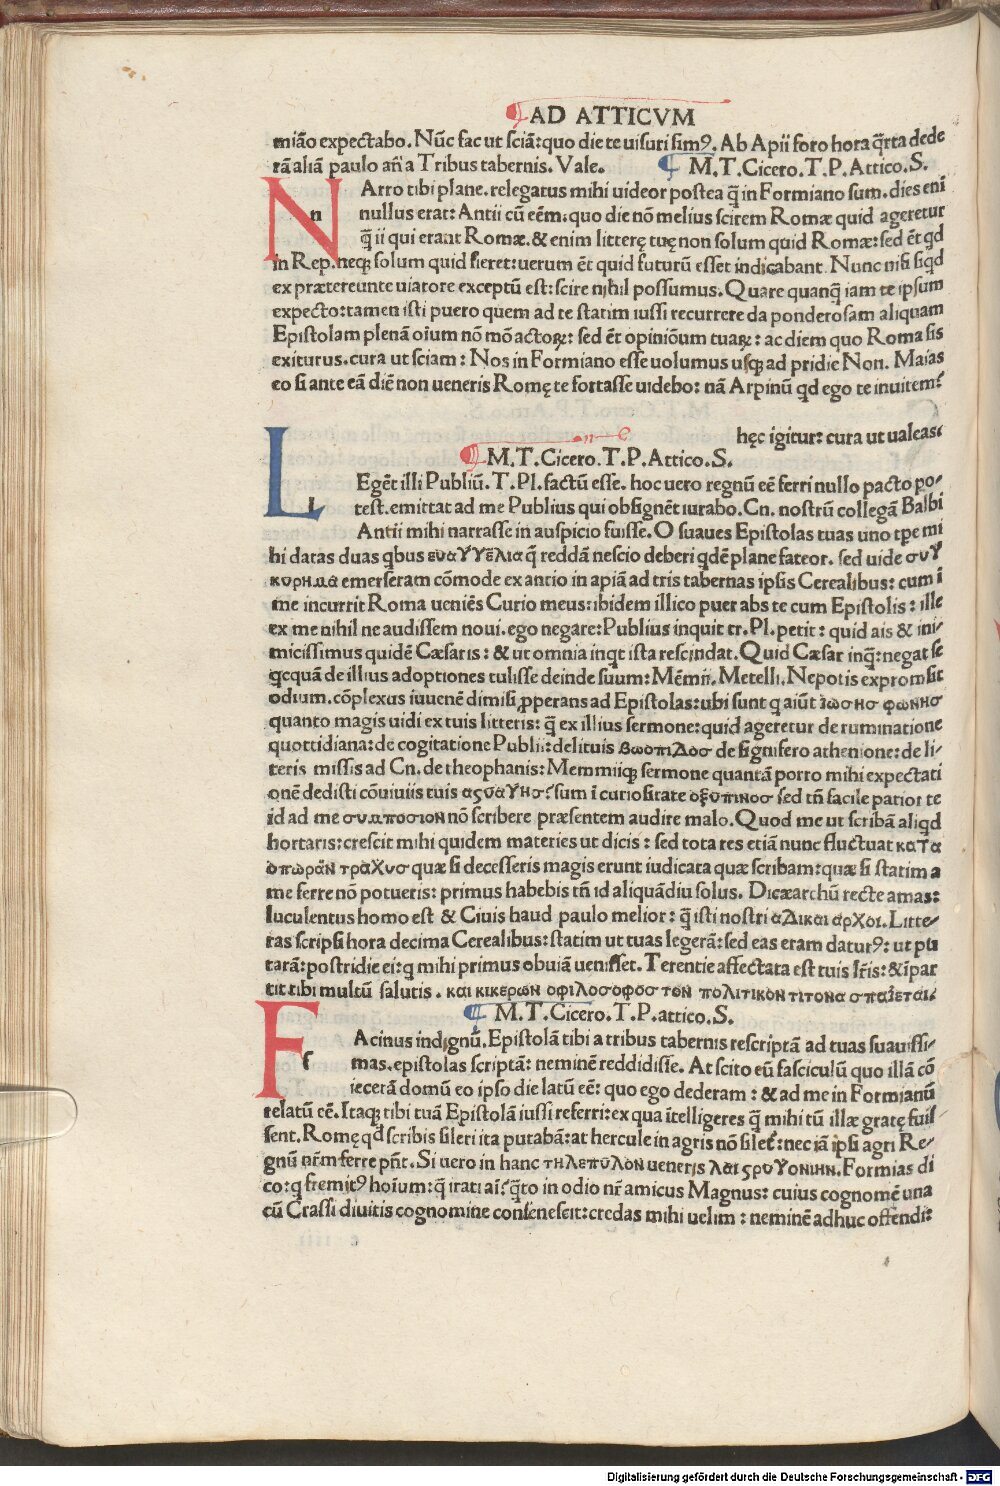 AD ATTICVM
miāo expectabo. Nūc fac ut sciā: quo die te uisuri simꝰ. Ab Apii foro hora q̄rta dede
rā aliā paulo an̄ a Tribus tabernis. Vale. ¶ M.T.Cicero.T.P.Attico.S.
NArro tibi plane. relegatus mihi uideor postea q̄ in Formiano sum. dies eni
n nullus erat: Antii cū eēm. quo die nō melius scirem Romæ quid ageretur
q̄ ii qui erant Romæ. & enim litterę tuę non solum quid Romæ: sed ēt qd
in Rep. neq; solum quid fieret: uerum ēt quid futurū esset indicabant. Nunc nisi siqd
ex prætereunte uiatore exceptū est: scire nihil possumus. Quare quanq̄ iam te ipsum
expecto: tamen isti puero quem ad te statim iussi recurrere da ponderosam aliquam
Epistolam plenā oium nō mō actoꝝ: sed ēt opinioūm tuaꝝ: ac diem quo Roma sis
exiturus. cura ut sciam: Nos in Formiano esse uolumus usq; ad pridie Non. Maias
eo si ante eā diē non ueneris Romę te fortasse uidebo: nā Arpinū qd ego te inuitem?
hęc igitur: cura ut ualeas.
¶ M.T.Cicero.T.P.Attico.S.
LEgēt illi Publiū. T. Pl. factū esse. hoc uero regnū eē ferri nullo pacto po-
l test. emittat ad me Publius qui obsignēt iurabo. Cn. nostrū collegā Balbi
Antii mihi narrasse in auspicio fuisse. O suaues Epistolas tuas uno tp̄e mi
hi datas duas qbus ευαγγελια q̄ reddā nescio deberi qdē plane fateor. sed uide συγ
κυρημα emerseram cōmode ex antio in apiā ad tris tabernas ipsis Cerealibus: cum ī
me incurrit Roma ueniēs Curio meus: ibidem illico puer abs te cum Epistolis: ille
ex me nihil ne audissem noui. ego negare: Publius inquit tr. Pl. petit: quid ais & ini-
micissimus quidē Cæsaris: & ut omnia inqt ista rescindat. Quid Cæsar inq̄: negat se
qcquā de illius adoptiones tulisse deinde suum: Mēmii. Metelli. Nepotis exprompsit
odium. cōplexus iuuenē dimisi ꝓperans ad Epistolas: ubi sunt q aiūt ζωσης φωνης
quanto magis uidi ex tuis litteris: q̄ ex illius sermone: quid ageretur de ruminatione
quottidiana: de cogitatione Publii: de lituis βωοπιδοσ de signifero athenione: de li-
teris missis ad Cn. de theophanis: Memmiiq; sermone quantā porro mihi expectati
onē dedisti cōuiuiis tuis ασυαγησ? sum ī curiositate οξυπινοσ sed tn̄ facile patior te
id ad me συμποσιον nō scribere præsentem audire malo. Quod me ut scribā aliqd
hortaris: crescit mihi quidem materies ut dicis: sed tota res etiā nunc fluctuat κατα
οπωραν τραχυσ quæ si decesseris magis erunt iudicata quæ scribam: quæ si statim a
me ferre nō potueris: primus habebis tn̄ id aliquādiu solus. Dicæarchū recte amas:
luculentus homo est & Ciuis haud paulo melior: q̄ isti nostri αδικαιαρχοι. Litte-
ras scripsi hora decima Cerealibus: statim ut tuas legerā: sed eas eram daturꝰ: ut pu
tarā: postridie ei: q mihi primus obuiā uenisset. Terentie affectata est tuis lr̄is: & īpar
tit tibi multū salutis. και κικερων οφιλοσοφοσ τον πολιτικον τιτονα σπαζεται.
¶ M.T.Cicero.T.P.attico.S.
FAcinus indignū. Epistolā tibi a tribus tabernis rescriptā ad tuas suauissi-
f mas. epistolas scriptā: neminē reddidisse. At scito eū fasciculū quo illā cō
iecerā domū eo ipso die latū eē: quo ego dederam: & ad me in Formianū
relatū eē. Itaq; tibi tuā Epistolā iussi referri: ex qua ītelligeres q̄ mihi tū illæ gratę fuis
sent. Romę qd scribis sileri ita putabā: at hercule in agris nō silet: nec iā ipsi agri Re-
gnū nr̄m ferre pn̄t. Si uero in hanc τηλεπυλον ueneris λαιςρυγονιην. Formias di
co: q fremitꝰ hoīum: q̄ irati ai? q̄to in odio nr̄ amicus Magnus: cuius cognomē una
cū Crassi diuitis cognomine consenescit: credas mihi uelim: neminē adhuc offendi:
Digitalisierung gefördert durch die Deutsche Forschungsgemeinschaft - DFG